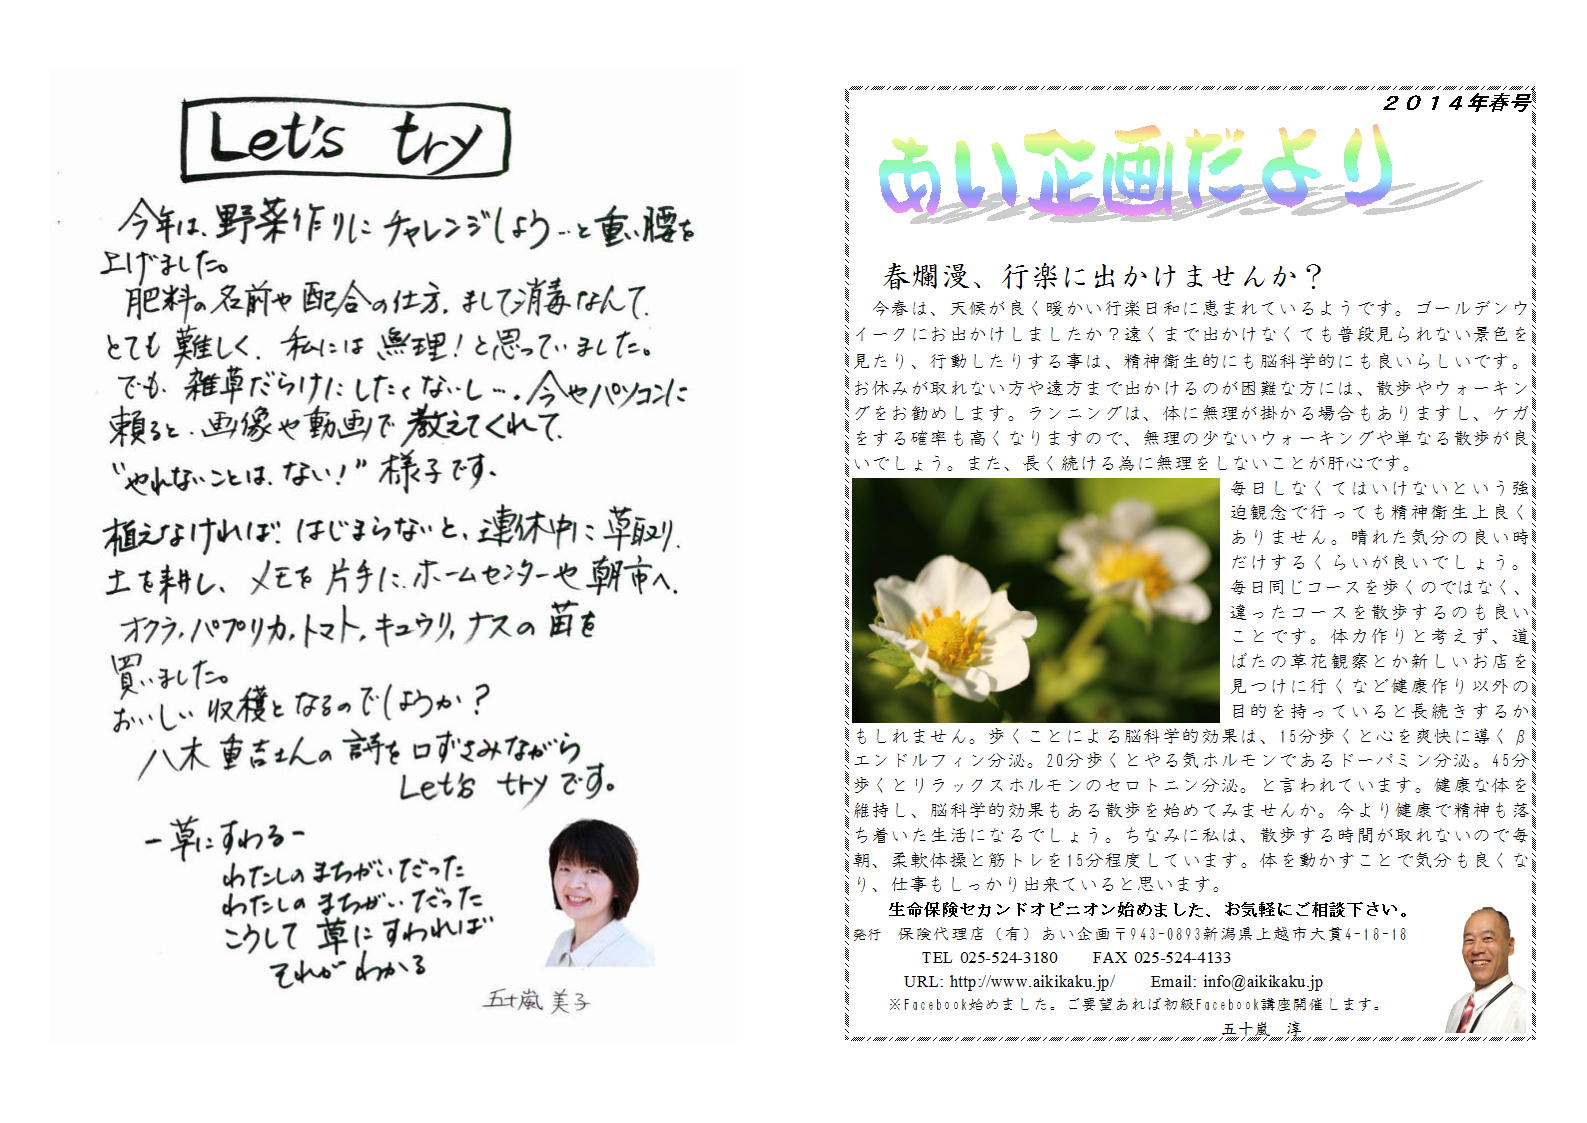 Let's try
今年は、野菜作りにチャレンジしよう…と重い腰を
上げました。
肥料の名前や配合の仕方、まして消毒なんて、
とても難しく、私には無理！と思っていました。
でも、雑草だらけにしたくないし…。今やパソコンに
頼ると、画像や動画で教えてくれて、
“やれないことは、ない！”様子です。
植えなければ、はじまらないと、連休中に草取り、
土を耕し、メモを片手に、ホームセンターや朝市へ、
オクラ，パプリカ，トマト，キュウリ，ナスの苗を
買いました。
おいしい収穫となるのでしょうか？
八木重吉さんの詩を口ずさみながら
Let's tryです。
ー草にすわるー
わたしのまちがいだった
わたしのまちがいだった
こうして草にすわれば
それがわかる
五十嵐美子
２０１４年春号
あい企画だより
春爛漫、行楽に出かけませんか？
今春は、天候が良く暖かい行楽日和に恵まれているようです。ゴールデンウ
イークにお出かけしましたか？遠くまで出かけなくても普段見られない景色を
見たり、行動したりする事は、精神衛生的にも脳科学的にも良いらしいです。
お休みが取れない方や遠方まで出かけるのが困難な方には、散歩やウォーキン
グをお勧めします。ランニングは、体に無理が掛かる場合もありますし、ケガ
をする確率も高くなりますので、無理の少ないウォーキングや単なる散歩が良
いでしょう。また、長く続ける為に無理をしないことが肝心です。
毎日しなくてはいけないという強
迫観念で行っても精神衛生上良く
ありません。晴れた気分の良い時
だけするくらいが良いでしょう。
毎日同じコースを歩くのではなく、
違ったコースを散歩するのも良い
ことです。体力作りと考えず、道
ばたの草花観察とか新しいお店を
見つけに行くなど健康作り以外の
目的を持っていると長続きするか
もしれません。歩くことによる脳科学的効果は、15分歩くと心を爽快に導くβ
エンドルフィン分泌。20分歩くとやる気ホルモンであるドーパミン分泌。45分
歩くとリラックスホルモンのセロトニン分泌。と言われています。健康な体を
維持し、脳科学的効果もある散歩を始めてみませんか。今より健康で精神も落
ち着いた生活になるでしょう。ちなみに私は、散歩する時間が取れないので毎
朝、柔軟体操と筋トレを15分程度しています。体を動かすことで気分も良くな
り、仕事もしっかり出来ていると思います。
生命保険セカンドオピニオン始めました、お気軽にご相談下さい。
発行　保険代理店（有）あい企画〒943-0893新潟県上越市大貫4-18-18
TEL 025-524-3180　FAX 025-524-4133
URL: http://www.aikikaku.jp/　Email: info@aikikaku.jp
※Facebook始めました。ご要望あれば初級Facebook講座開催します。
五十嵐　淳